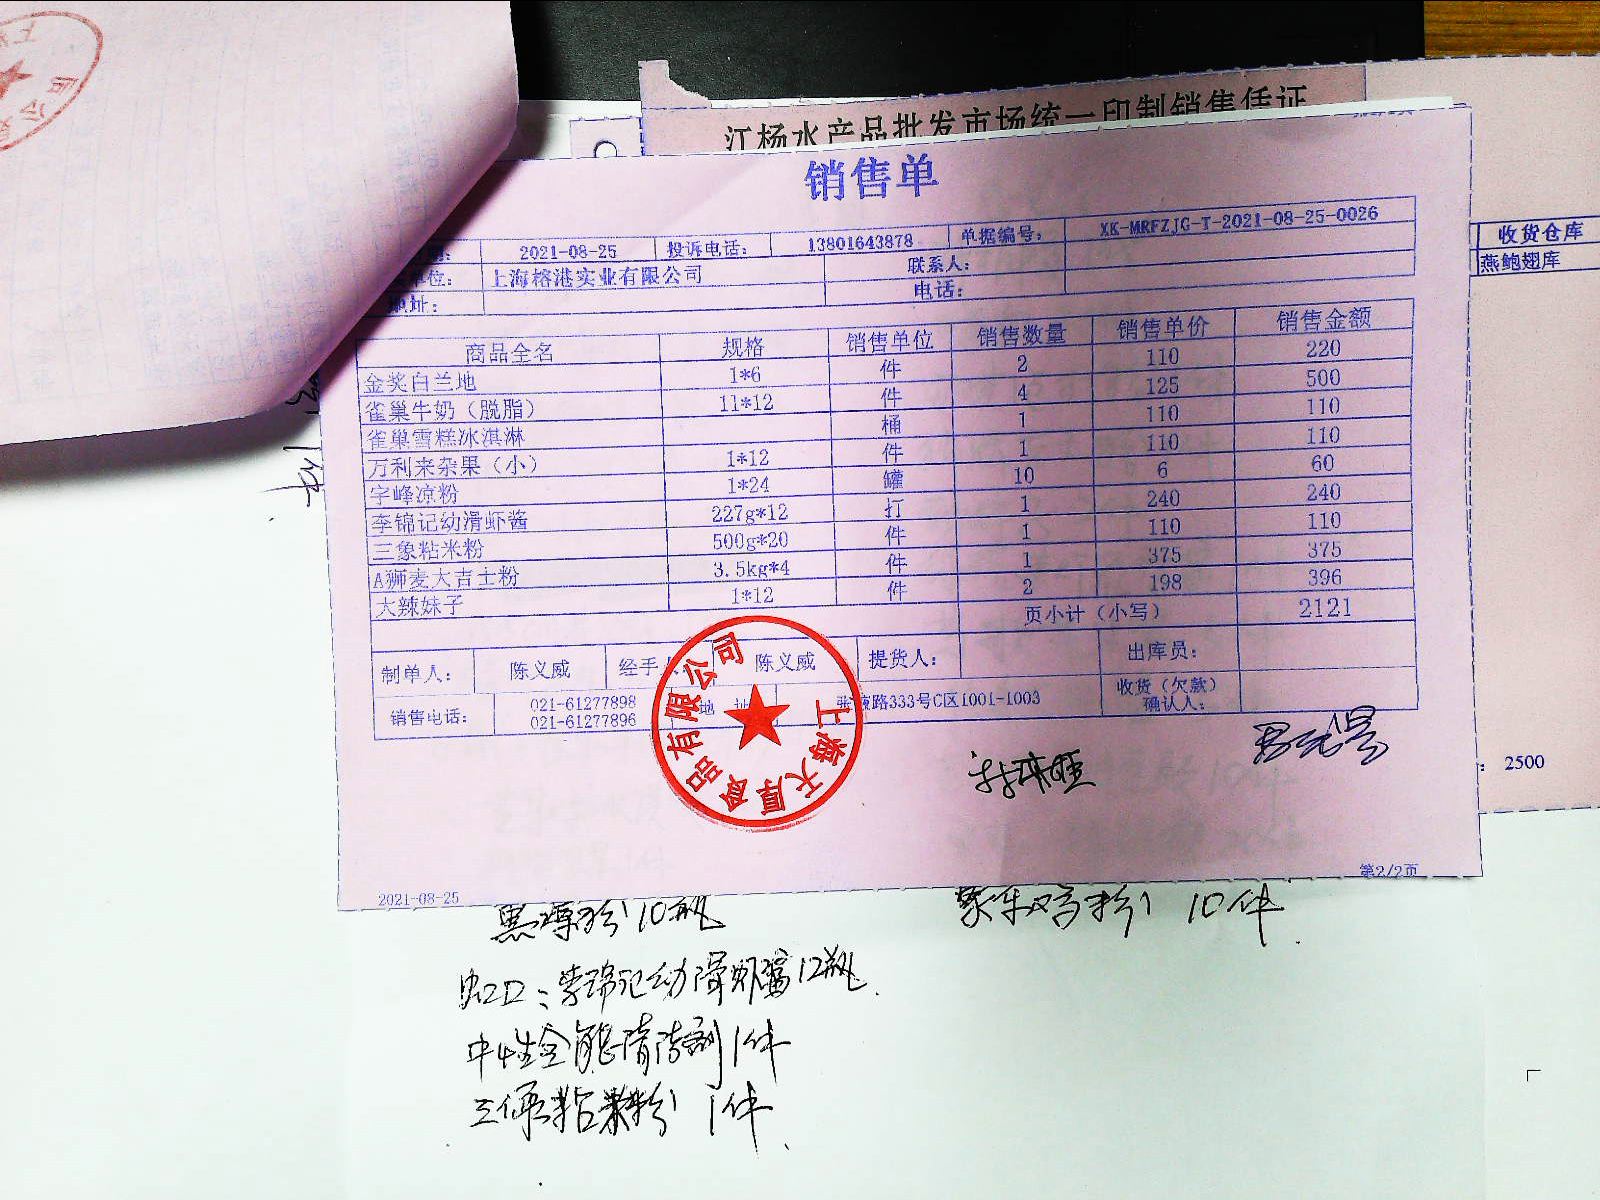 江杨水产品批发市场统一印制销售凭证
销售单
2021-08-25 投诉电话: 13801643878 单据编号: XK-MRFZJG-T-2021-08-25-0026
单位: 上海榕港实业有限公司 联系人:
地址: 电话:
收货仓库
燕鲍翅库
商品全名 规格 销售单位 销售数量 销售单价 销售金额
金奖白兰地 1*6 件 2 110 220
雀巢牛奶（脱脂） 11*12 件 4 125 500
雀巢雪糕冰淇淋 桶 1 110 110
万利来杂果（小） 1*12 件 1 110 110
宇峰凉粉 1*24 罐 10 6 60
李锦记幼滑虾酱 227g*12 打 1 240 240
三象粘米粉 500g*20 件 1 110 110
A狮麦大吉士粉 3.5kg*4 件 1 375 375
大辣妹子 1*12 件 2 198 396
页小计（小写） 2121
制单人: 陈义威 经手人 陈义威 提货人: 出库员:
销售电话: 021-61277898 021-61277896 地址 路333号C区1001-1003 收货（欠款）确认人:
上海天厚食品有限公司
: 2500
2021-08-25 第2/2页
黑椒粉10瓶
10件
虹口: 李锦记幼滑虾酱12瓶
中性全能清洁剂1件
三象粘米粉 1件